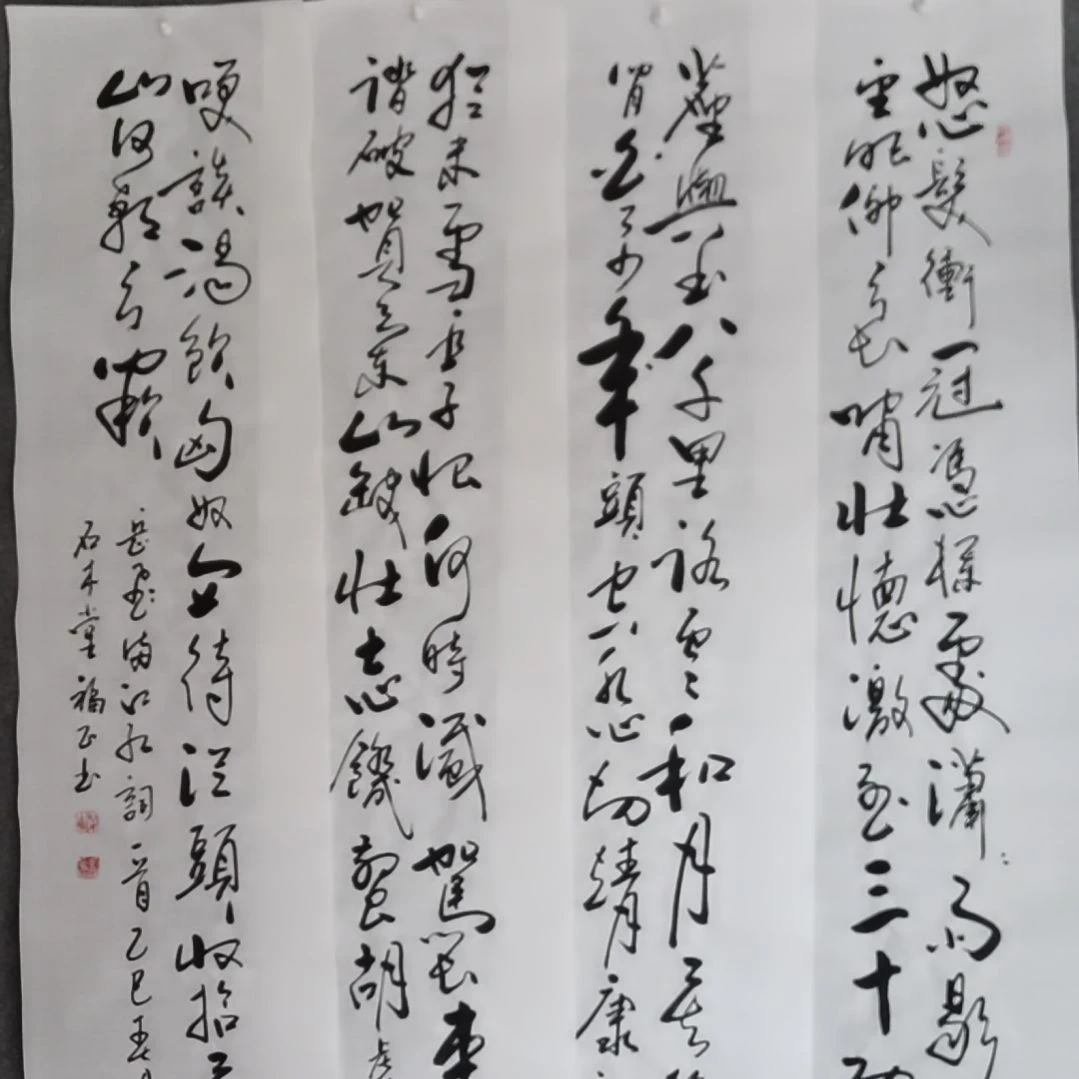 怒髮衝冠憑欄處瀟瀟雨歇
望眼仰天長嘯壯懷激烈三十功
塵與土八千里路雲和月莫等
閒白了少年頭空悲切靖康
猶未雪臣子恨何時滅駕長車
踏破賀蘭山缺壯志饑餐胡虜
笑談渴飲匈奴血待從頭收拾舊
山河朝天闕
岳飛滿江紅詞一首乙巳春月
石木堂福正书